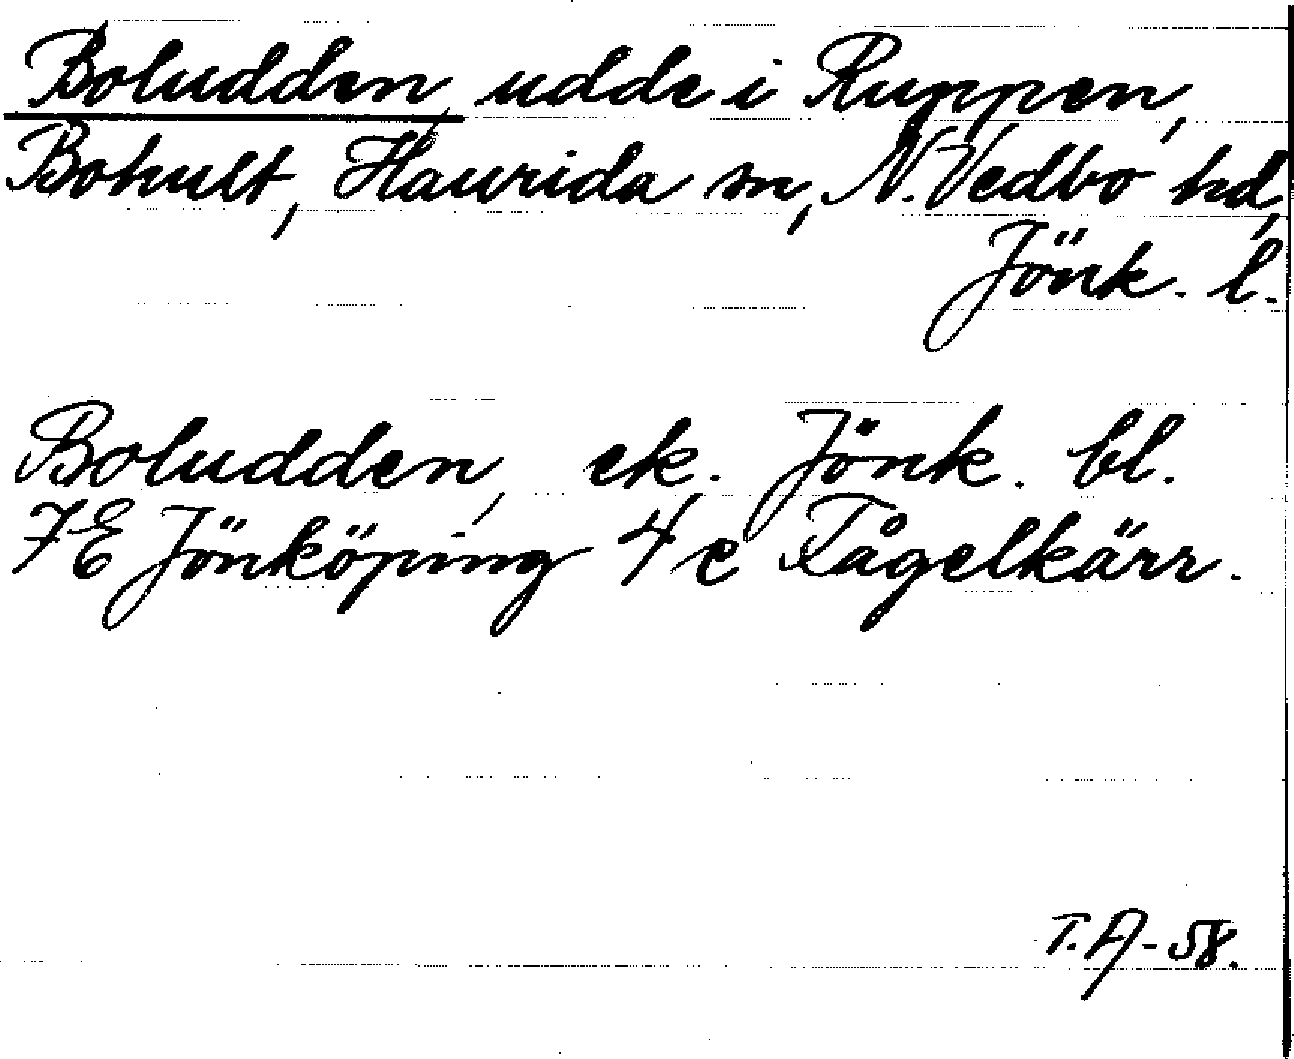 Boludden, udde i Ruppen,
Bohult, Haurida sn, N. Vedbo hd,
Jönk. l.
Boludden, ek. Jönk. bl.
7E Jönköping 4 e Fågelkärr.
T. A-58.